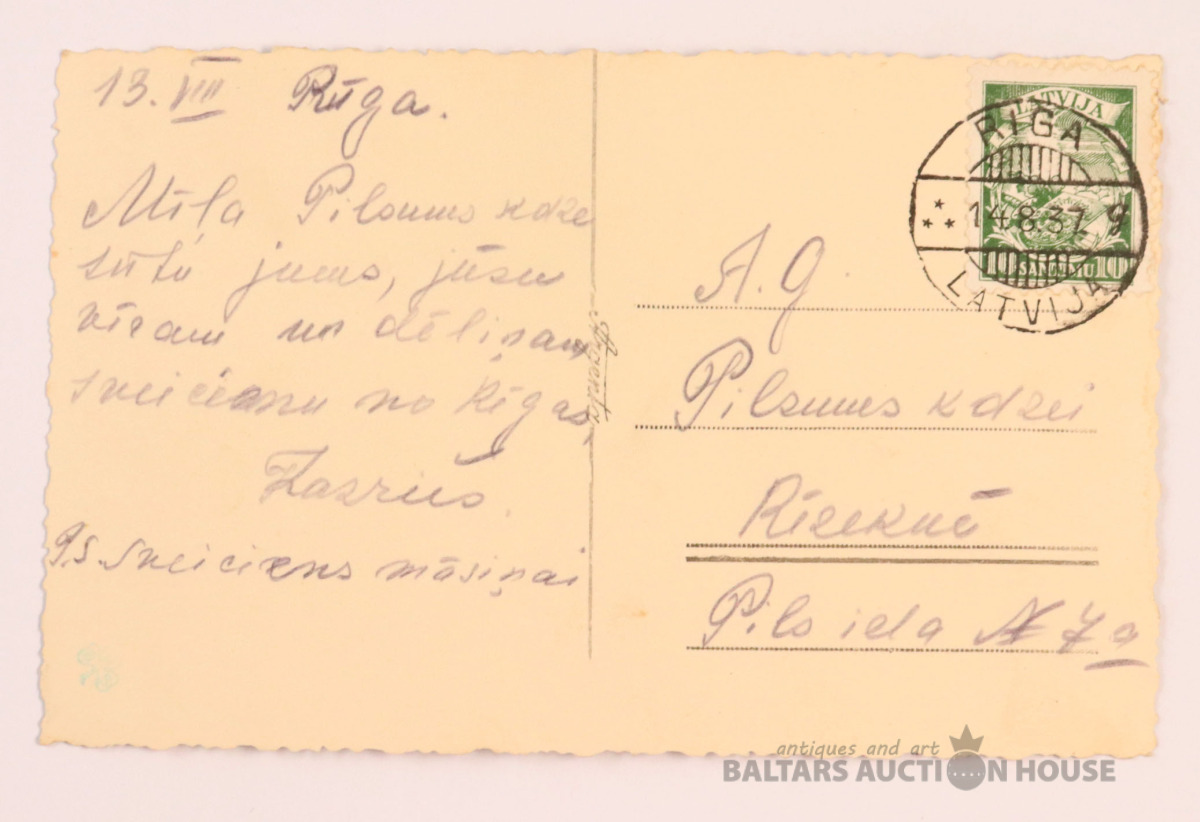 13. VIII Rīga.
Mīļa Pilsums kdze
sūtu jums, jūsu
vīram un dēliņam
sveicienu no Rīgas,
P.S. Sveiciens māsiņai
LATVIJA
SANTIMU 10
RIGA
14.8.37 g
LATVIJA
A. G.
Pilsums kdzei
Rēzeknē
Pils iela № 7a
antiques and art
BALTARS AUCTION HOUSE